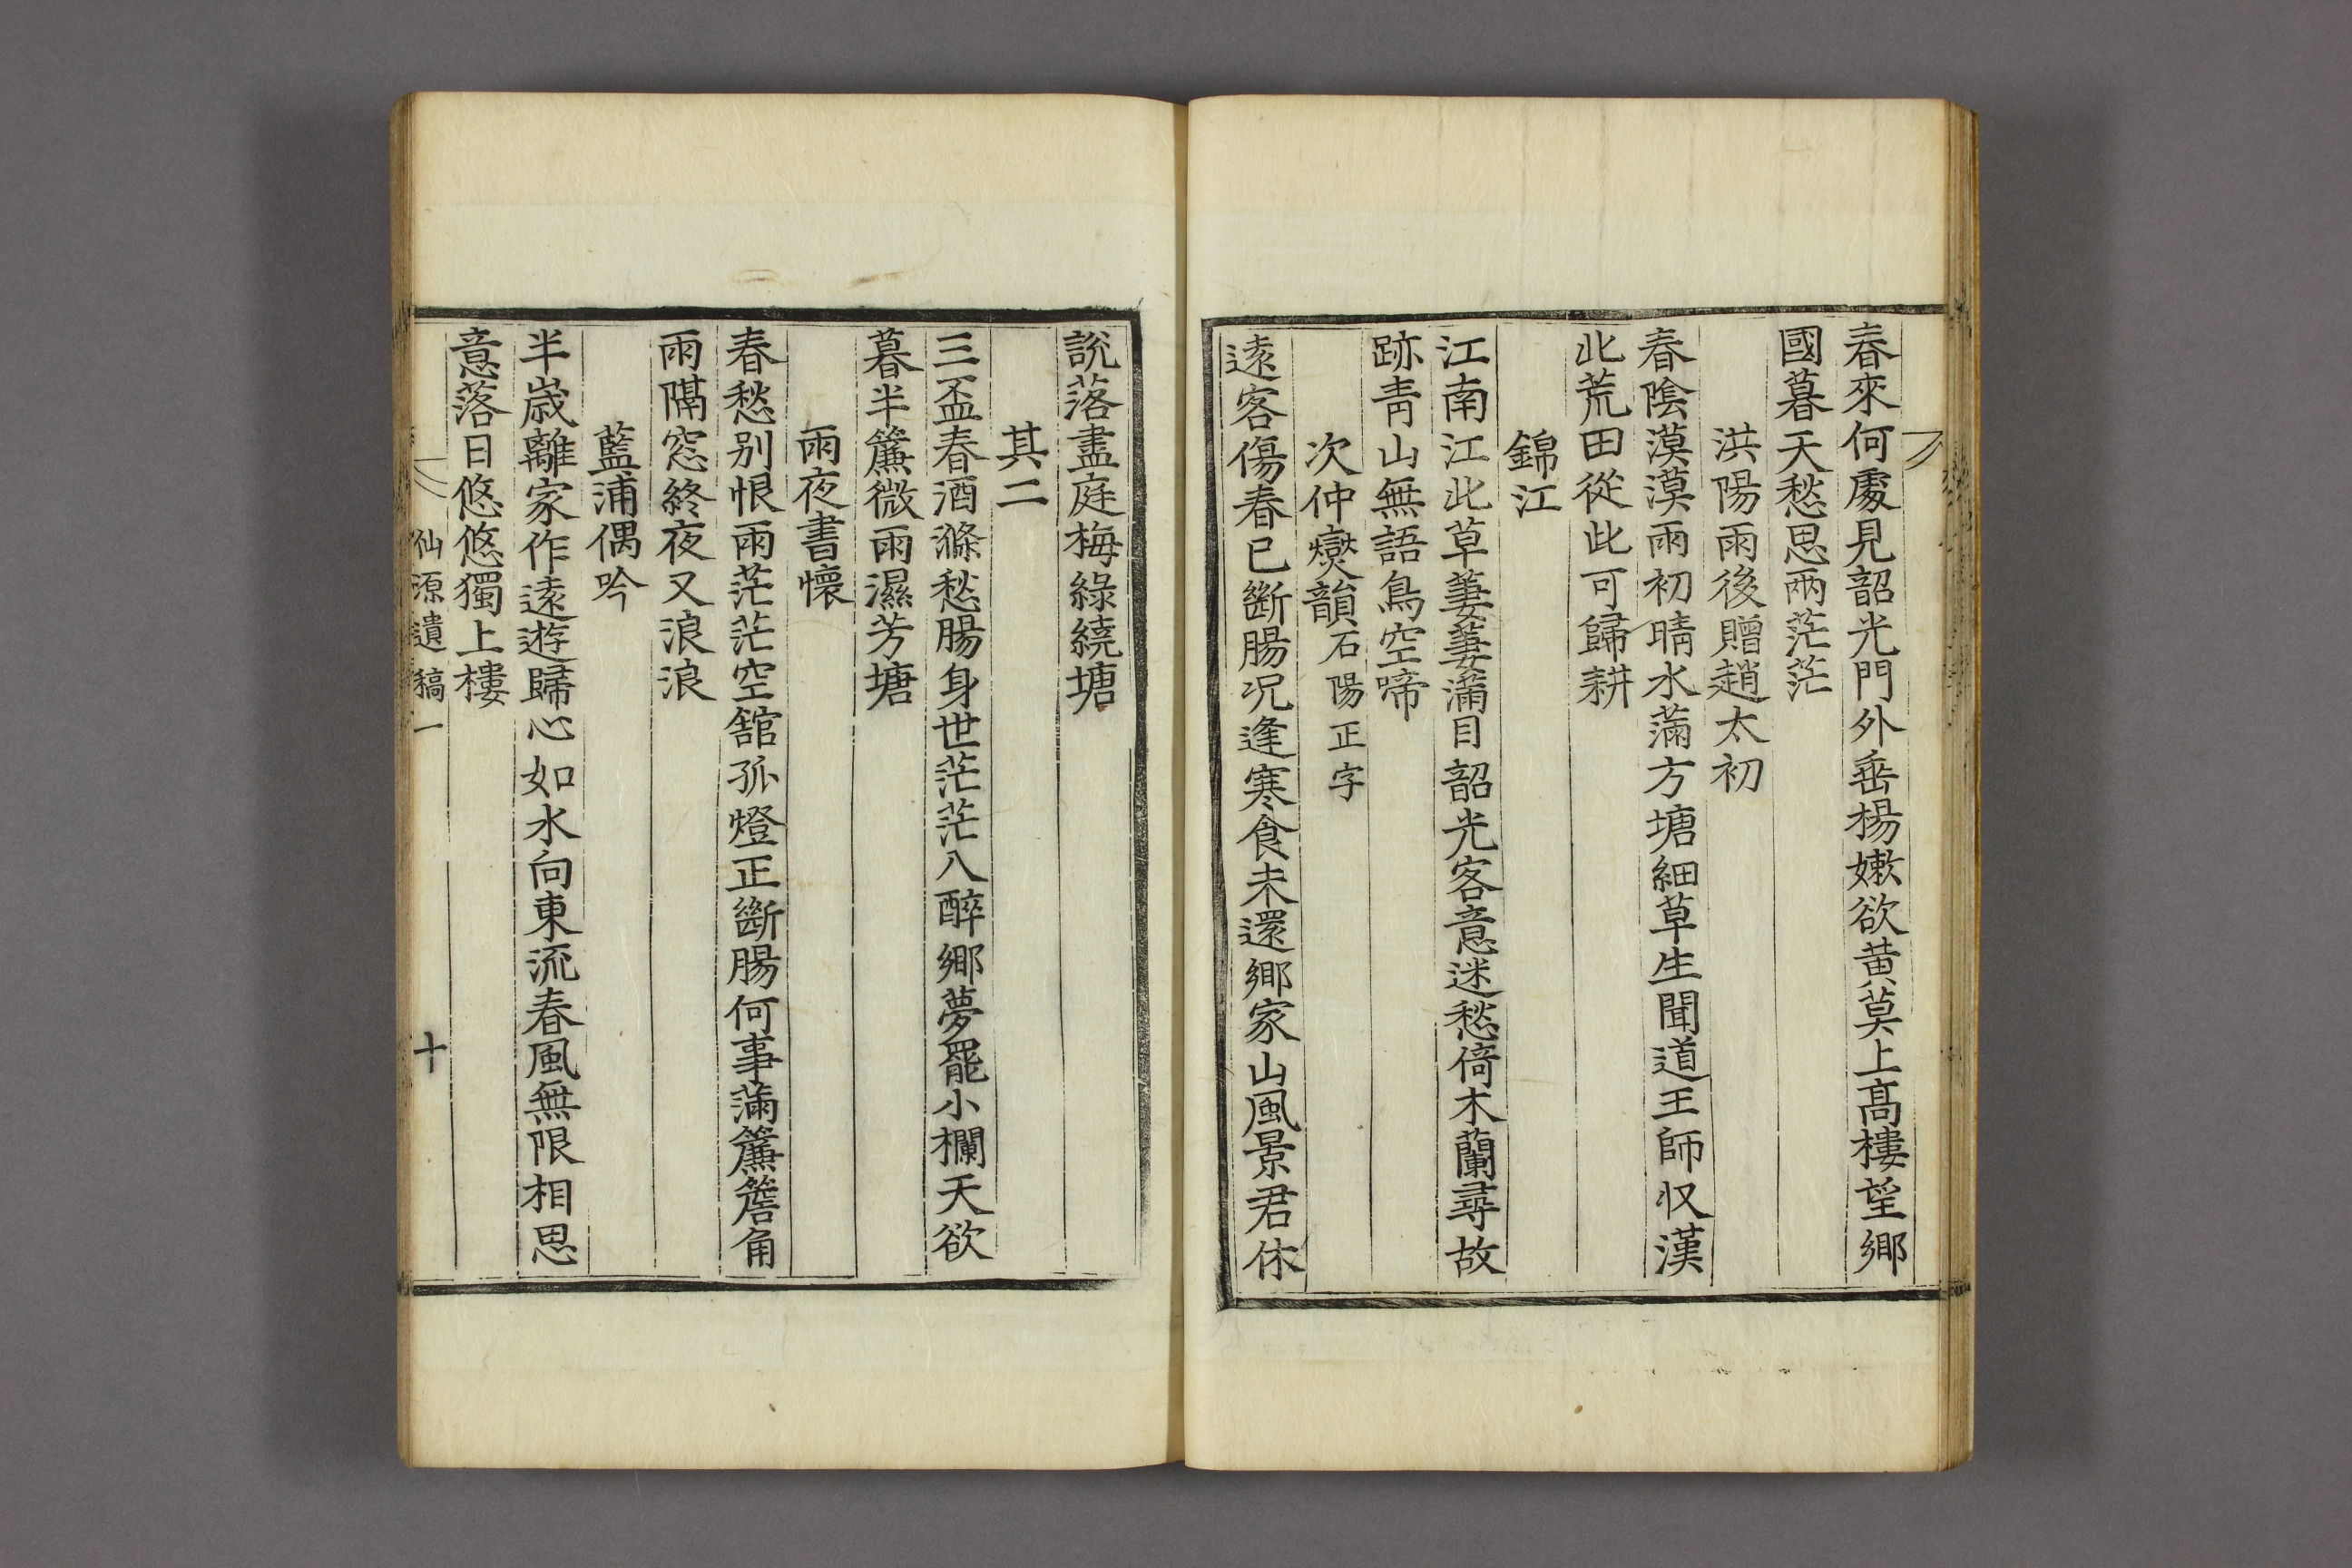 春來何處見韶光門外垂楊嫩欲黃莫上高樓望鄉
國暮天愁思兩茫茫
洪陽雨後贈趙太初
春陰漠漠雨初晴水滿方塘細草生聞道王師収漢
此荒田從此可歸耕
錦江
江南江北草萋萋滿目韶光客意迷愁倚木蘭尋故
跡靑山無語鳥空啼
次仲爕韻石陽正字
遠客傷春已斷腸况逢寒食未還鄉家山風景君休
說落盡庭梅綠繞塘
其二
三盃春酒滌愁腸身世茫茫入醉鄉夢罷小欄天欲
暮半簾微雨濕芳塘
雨夜書懷
春愁別恨雨茫茫空舘孤燈正斷腸何事滿簾簷角
雨隔窓終夜又浪浪
藍浦偶吟
半歲離家作遠遊歸心如水向東流春風無限相思
意落日悠悠獨上樓
仙源遺稿一
十